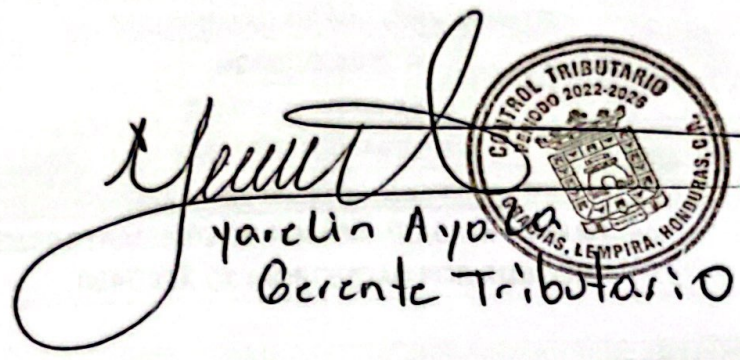 CONTROL TRIBUTARIO
PERIODO 2022-2026
GRACIAS, LEMPIRA, HONDURAS, C.A.
Yarelin Ayala
Gerente Tributario